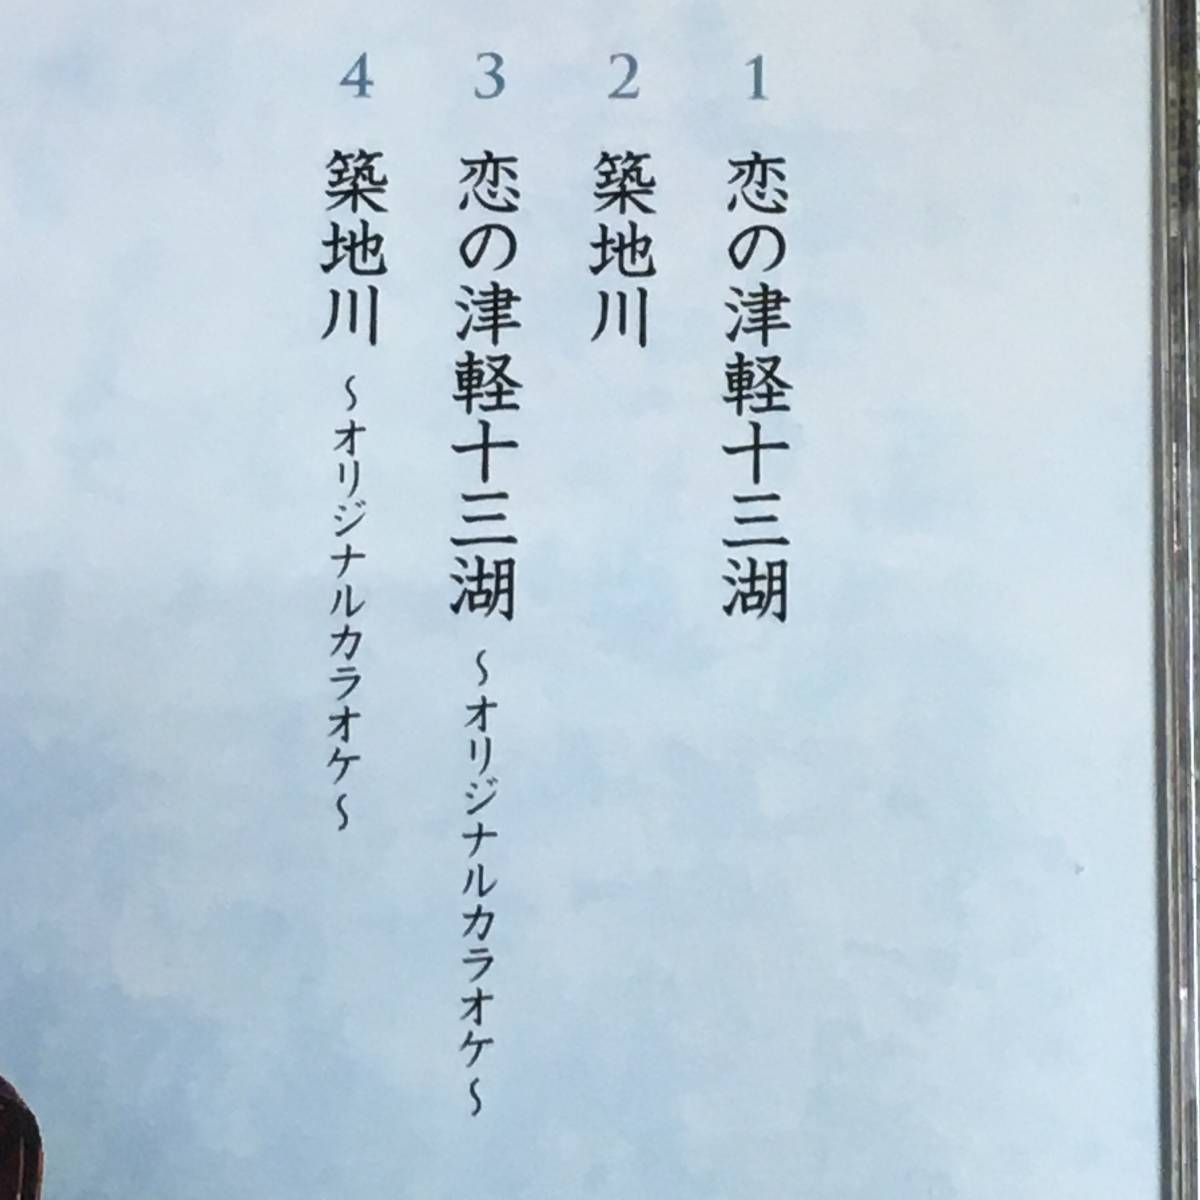 1 恋の津軽十三湖
2 築地川
3 恋の津軽十三湖 ~オリジナルカラオケ~
4 築地川 ~オリジナルカラオケ~